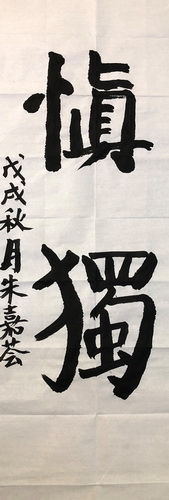 慎獨
戊戌秋月朱嘉荟